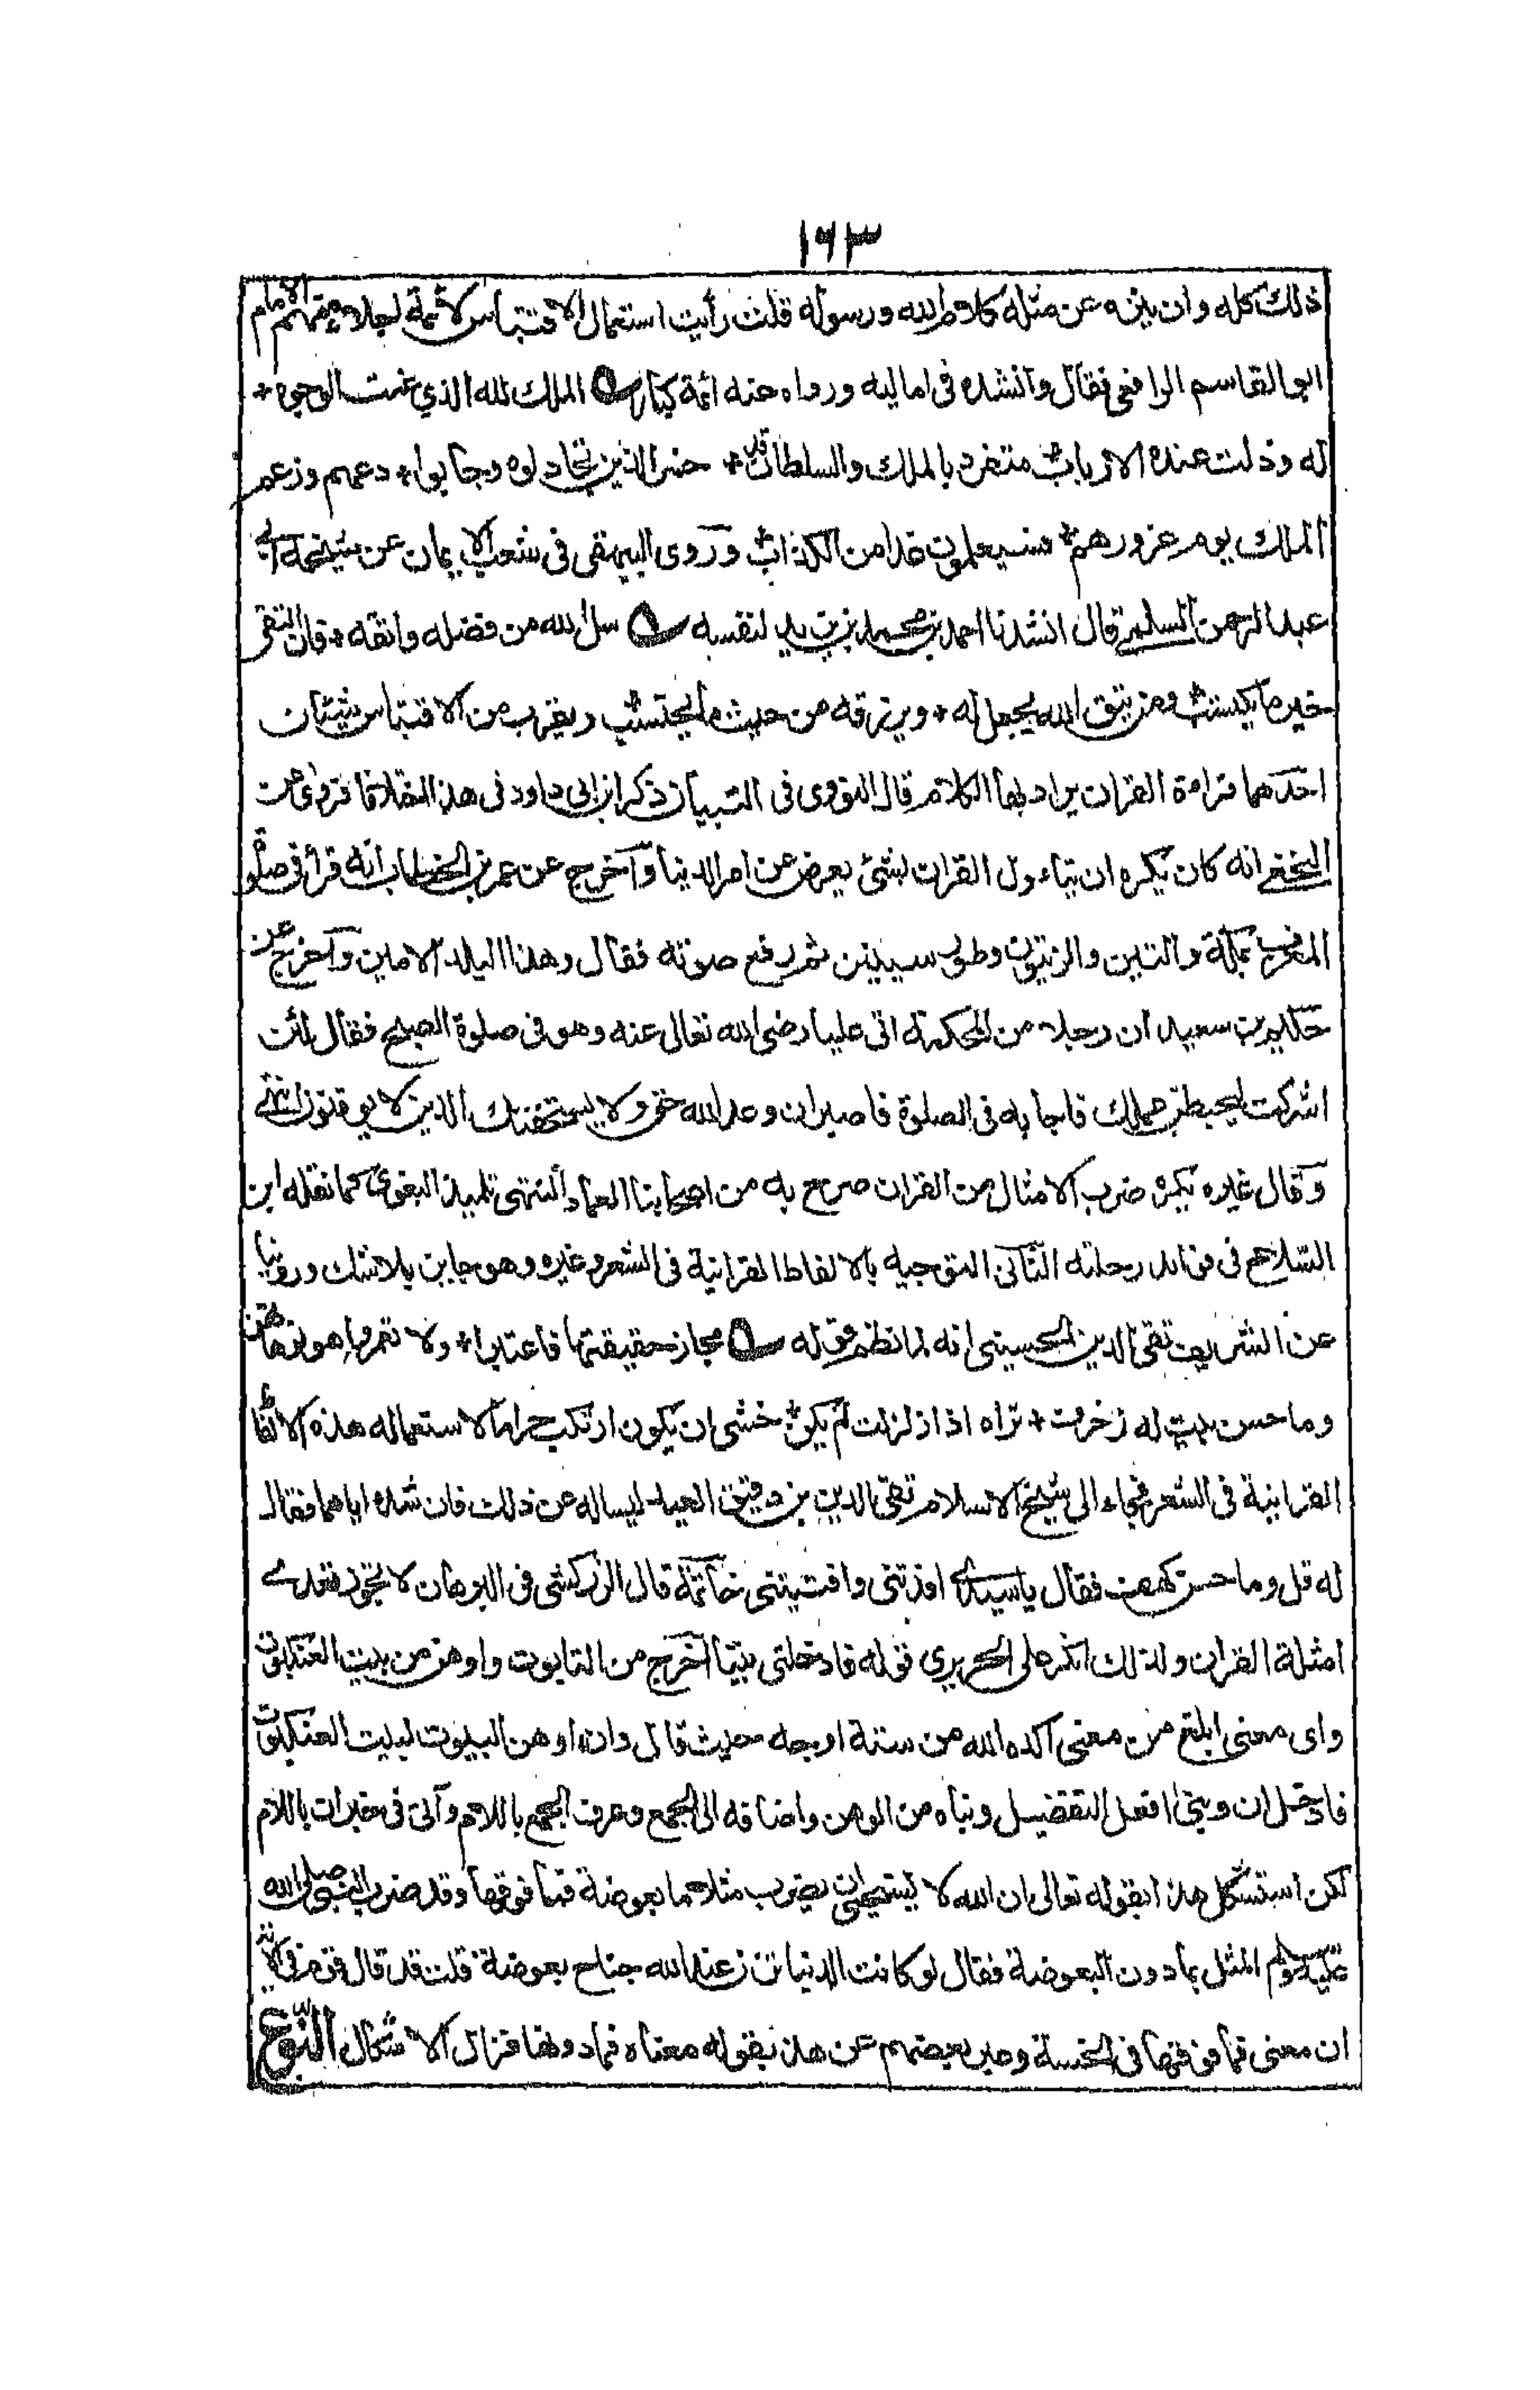 ١٦٣
ذلك كله وان ينزه عن مثله كلام الله ورسوله قلت رأيت استعمال الاقتباس لائمة اجلاء منهم الامام
ابو القاسم الرافعي فقال وانشده في اماليه ورواه عنه ائمة كبار الملك لله الذي عنت الوجوه +
له وذلت عنده الارباب متفرد بالملك والسلطان قد + خسر الذين تجادلوه وخابوا + دعهم وزعم
الملك يوم غرورهم فسيعلمون غدا من الكذاب وروى البيهقي في شعب الايمان عن شيخه ابي
عبد الرحمن السلمي قال انشدنا احمد بن محمد بن يزيد لنفسه سل الله من فضله واتقه + فان التقى
خير ما يكتسب ومن يتق الله يجعل له + ويرزقه من حيث لا يحتسب ويقرب من الاقتباس شيئان
احدهما قراءة القران يراد بها الكلام قال النووي في التبيان ذكر ابن ابي داود في هذا اختلافا فروى عن
النخعي انه كان يكره ان يتاول القران لشئ يعرض من امر الدنيا واخرج عن عمر بن الخطاب انه قرأ في صلوة
المغرب بمكة والتين والزيتون وطور سينين ثم رفع صوته فقال وهذا البلد الامين واخرج عن
حكيم بن سعيد ان رجلا من المحكمة اتى عليا رضي الله تعالى عنه وهو في صلوة الصبح فقال لئن
اشركت ليحبطن عملك فاجابه في الصلوة فاصبر ان وعد الله حق ولا يستخفنك الذين لا يوقنون انتهى
وقال غيره يكره ضرب الامثال من القران صرح به من اصحابنا العماد النيهي تلميذ البغوي كما نقله ابن
الصلاح في فوائد رحلته الثاني التوجيه بالالفاظ القرانية في الشعر وغيره وهو جايز بلا شك وروينا
عن الشريف تقي الدين الحسيني انه لما نظم قوله مجاز حقيقتها فاعبروا + ولا تعمروا هونوها تهن
وما حسن بيت له زخرف + تراه اذا زلزلت لم يكن خشي ان يكون ارتكب حراما لاستعماله هذه الالفاظ
القرانية في الشعر فجاء الى شيخ الاسلام تقي الدين بن دقيق العيد ليساله عن ذلك فانشده اياهما فقال
له قل وما حسن كهف فقال يا سيدي افدتني وافتيتني خاتمة قال الزركشي في البرهان لا يجوز تعدي
امثلة القران ولذلك انكر على الحريري قوله فادخلني بيتا احرج من التابوت واوهن من بيت العنكبوت
واى معنى ابلغ من معنى اكده الله من ستة اوجه حيث قال وان اوهن البيوت لبيت العنكبوت
فادخل ان وبنى افعل التفضيل وبناه من الوهن واضافه الى الجمع وعرف الجمع باللام واتى في خبر ان باللام
لكن استشكل هذا بقوله تعالى ان الله لا يستحيي ان يضرب مثلا ما بعوضة فما فوقها وقد ضرب النبي صلى الله
عليه وسلم المثل بما دون البعوضة فقال لو كانت الدنيا تزن عند الله جناح بعوضة قلت قد قال قوم في الاية
ان معنى فما فوقها في الخسة وعبر بعضهم عن هذا بقوله معناه فما دونها فزال الاشكال النوع